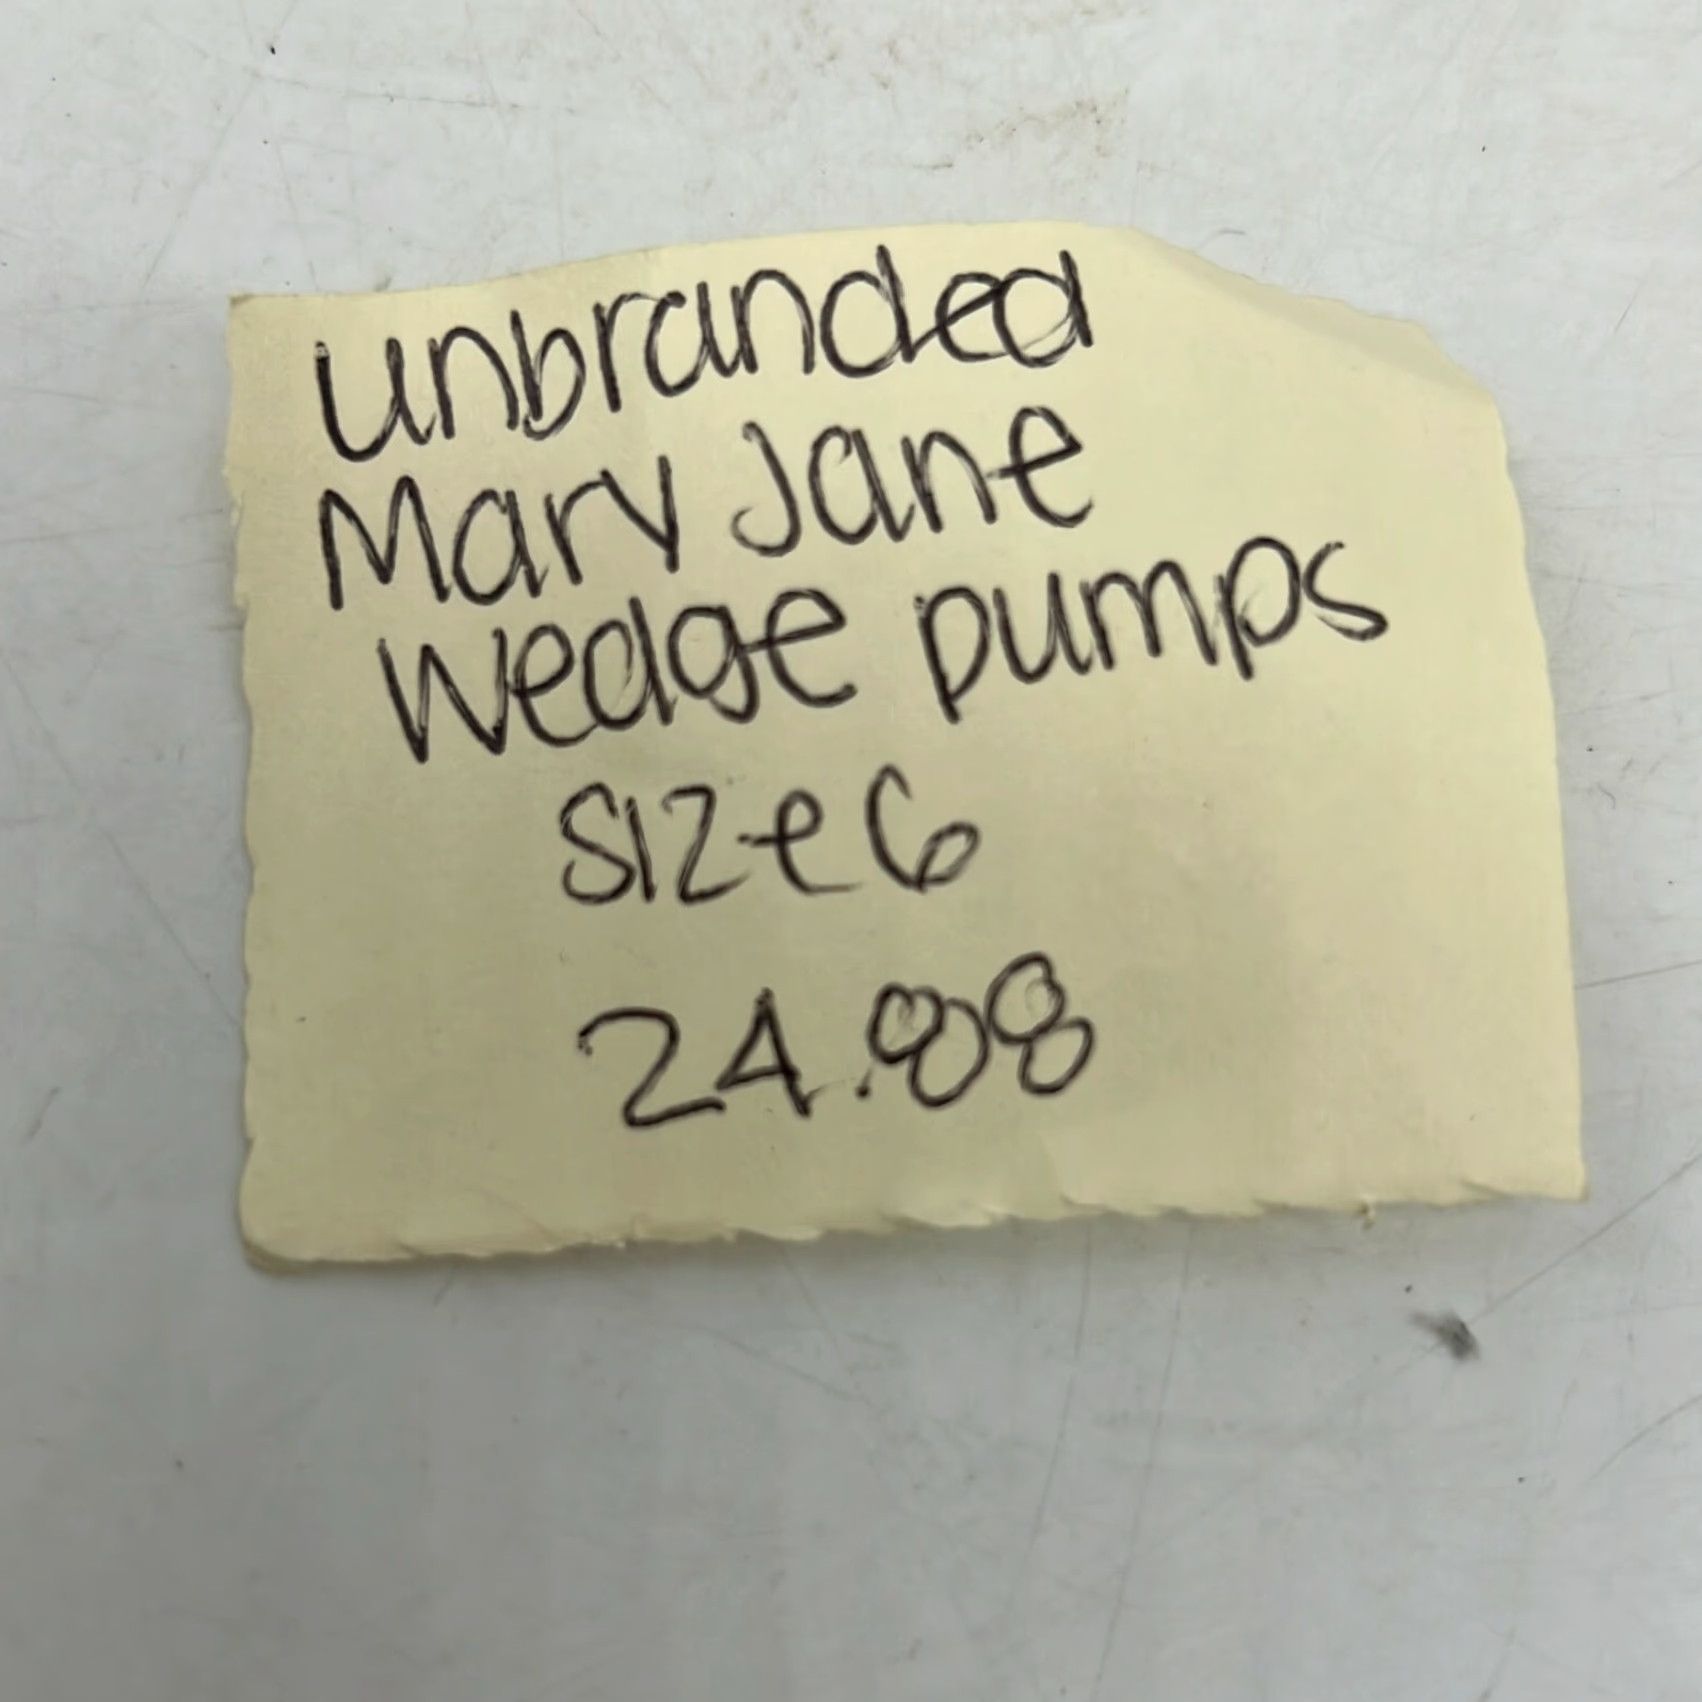 unbranded
Mary Jane
Wedge pumps
size 6
24.88